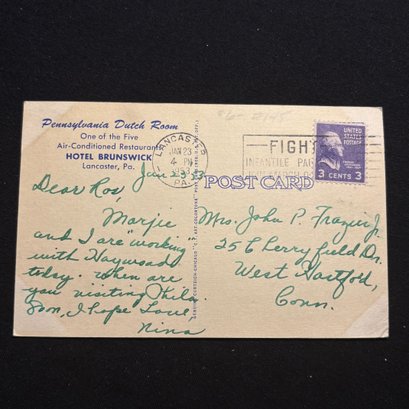 #6- 2145
Pennsylvania Dutch Room
One of the Five
Air-Conditioned Restaurants
HOTEL BRUNSWICK
Lancaster, Pa.
LANCASTER
JAN 23
4 PM
PA.
FIGHT
INFANTILE
UNITED STATES POSTAGE
3 CENTS 3
POST CARD
Dear Ros,
Marjie
and I are "working"
with Haywoods
today. When are
you visiting Phila.
Soon, I hope Love
Nina
Mrs. John P. Frazier Jr.
25 Cherryfield Dr.
West Hartford,
Conn.